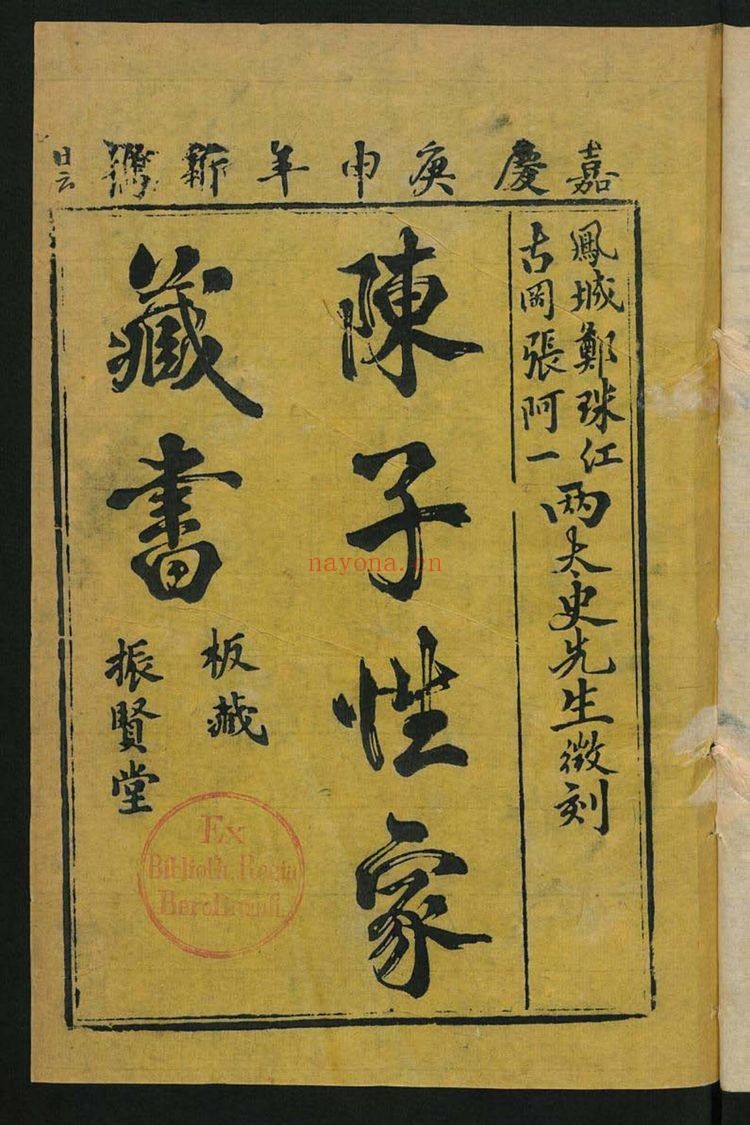 嘉慶庚申年新鐫
鳳城鄭珠江
古岡張阿一
兩太史先生徵刻
陳子性家
藏書
板藏
振賢堂
Ex
Biblioth. Regia
Berolinensi.
nayona.cn